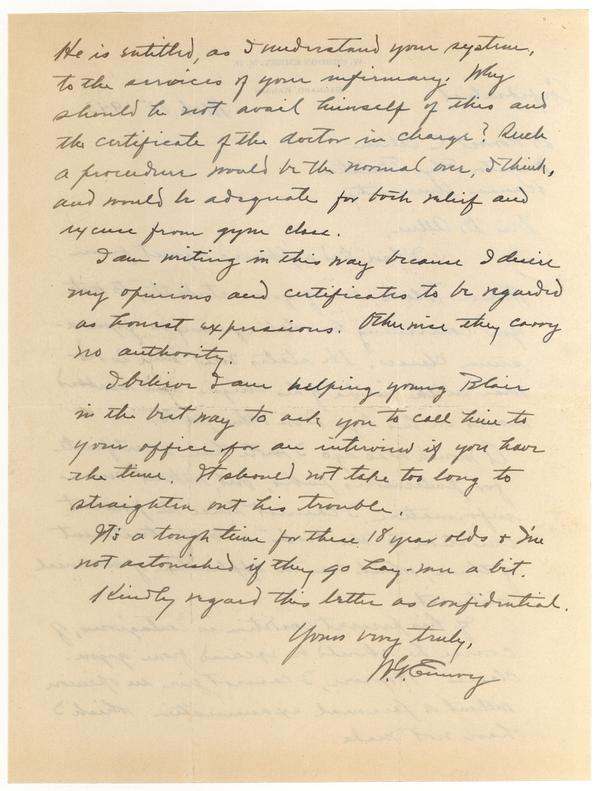 He is entitled, as I understand your system,
to the services of your infirmary. Why
should he not avail himself of this and
the certificate of the doctor in charge? Such
a procedure would be the normal one, I think,
and would be adequate for both relief and
excuse from gym class.
I am writing in this way because I desire
my opinions and certificates to be regarded
as honest expressions. Otherwise they carry
no authority.
I believe I am helping young Blair
in the best way to ask you to call him to
your office for an interview if you have
the time. It should not take too long to
straighten out his trouble.
It's a tough time for these 18 year olds & I'm
not astonished if they go hay-wire a bit.
Kindly regard this letter as confidential.
Yours very truly,
W. G. Emery